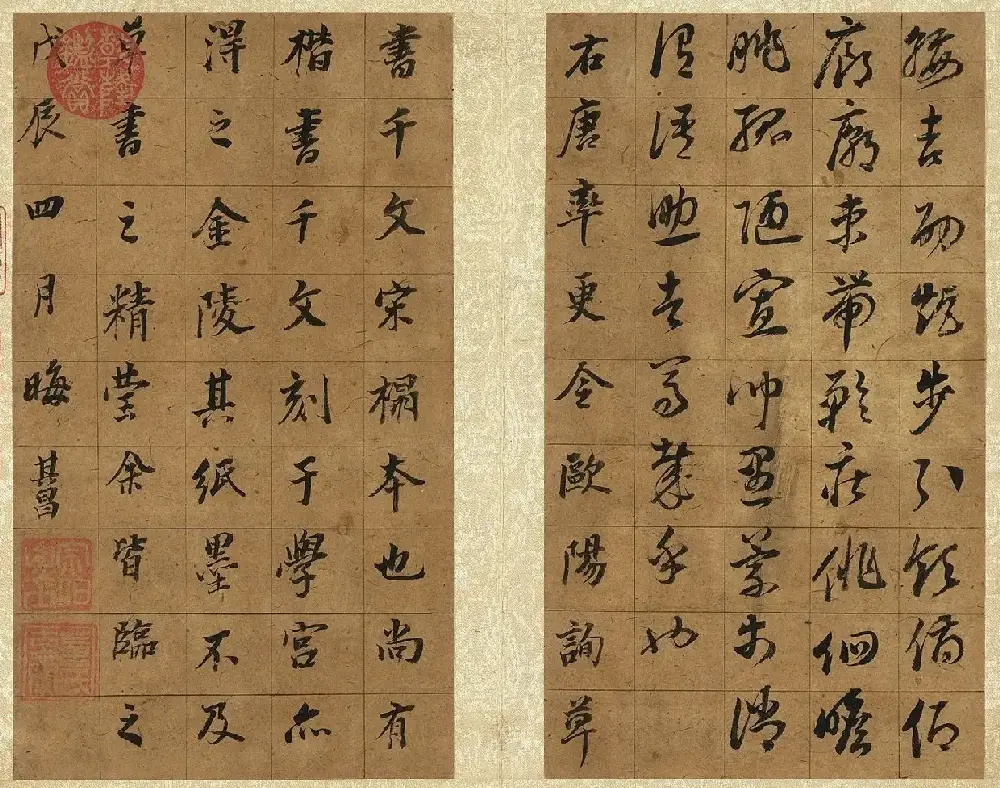 綏吉劭矩步引領俯仰
廊廟束帶矜莊徘徊瞻
眺孤陋寡聞愚蒙等誚
謂語助者焉哉乎也
右唐率更令歐陽詢草
書千文宋榻本也尚有
楷書千文刻于學宮亦
得之金陵其紙墨不及
草書之精瑩余皆臨之
戊辰四月晦其昌
乾隆鑑賞
宗伯學士